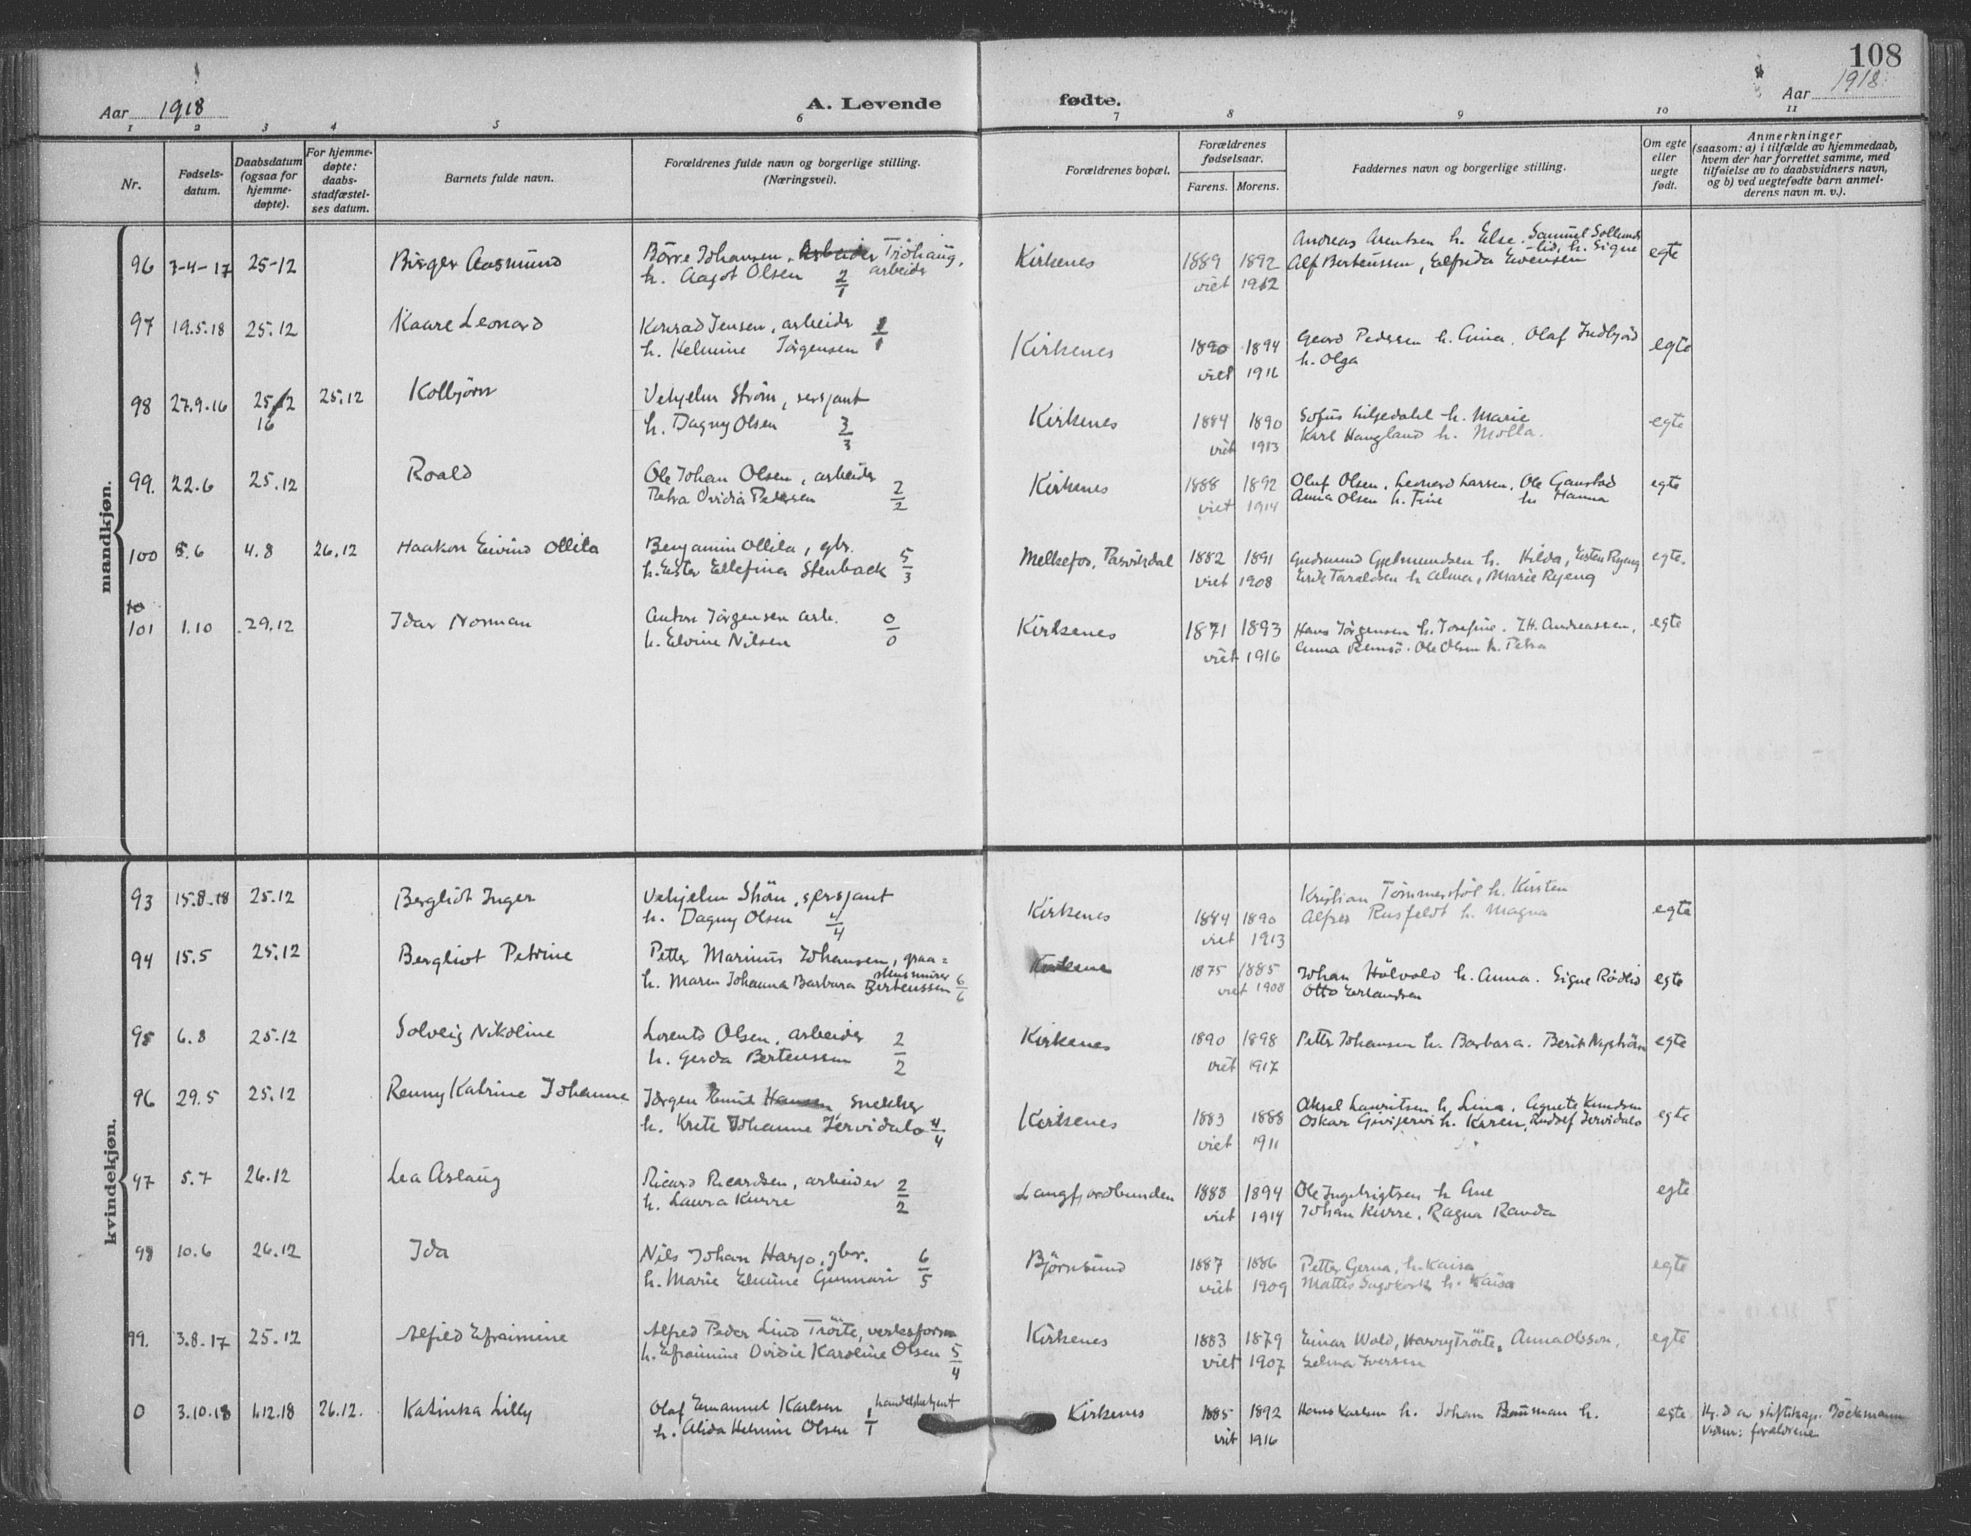 108
Aar 1918
A. Levende fødte.
Aar 1918
1 2 3 4 5 6 7 8 9 10 11
Nr.
Fødsels-
datum.
Daabsdatum
(ogsaa for
hjemme-
døpte).
For hjemme-
døpte:
daabs-
stadfæstel-
ses datum.
Barnets fulde navn.
Forældrenes fulde navn og borgerlige stilling.
(Næringsvei).
Forældrenes bopæl.
Forældrenes
fødselsaar.
Farens. Morens.
Faddernes navn og borgerlige stilling.
Om egte
eller
uegte
født.
Anmerkninger
(saasom: a) i tilfælde av hjemmedaab,
hvem der har forrettet samme, med
tilføielse av to daabsvidners navn,
og b) ved uegtefødte barn anmel-
derens navn m. v.).
mandkjøn.
96 3-4-17 25-12 Birger Aasmund Børre Johansen, Arbeider Trøhaug, Kirkenes 1889 1892 Andreas Arentsen h. Else. Samuel egte
h. Aagot Olsen 2/1 arbeider viet 1912 Alf Bertenssen, Elfrida Evensen h. Signe
97 19.5.18 25.12 Kaare Leonard Konrad Jensen, arbeider 1/1 Kirkenes 1890 1894 Georg Pedersen h. Gina. Olaf egte
h. Helmine Jørgensen viet 1916 h. Olga
98 27.9.16 25/12 16 25.12 Kolbjørn Vehjelm Strøm, sersjant Kirkenes 1884 1890 Sofus Liljedahl h. Marie egte
h. Dagny Olsen 3/3 viet 1913 Karl Haugland h. Molla.
99. 22.6 25.12 Roald Ole Johan Olsen, arbeider 2/2 Kirkenes 1888 1892 Oluf Olsen, Leonard Larsen, Ole Ganstad egte
Petra Ovidia Pedersen viet 1914 Anna Olsen h. Tine h. Hanna
100 5.6 4.8 26.12 Haakon Eivind Ollila Benjamin Ollila, gbr. 5/3 Melkefos, Pasvikdal 1882 1891 Gudmund Gjetmundsen h. Hilda, Esten Ryeng egte.
h. Ester Ellefina Stenback viet 1908 Erik Taraldsen h. Alma, Marie Ryeng
101 1.10 29.12 Idar Norman Anton Jørgensen arb. 0/0 Kirkenes 1871 1893 Hans Jørgensen h. Josefine. J.H. Andreassen, egte
h. Elvine Nilsen viet 1916 Anna Remsö. Ole Olsen h. Petra
kvindekjøn.
93 15.8.18 25.12 Bergliot Inger Vehjelm Strøm, sersjant Kirkenes 1884 1890 Kristian Tømmerstøl h. Kirsten egte
h. Dagny Olsen 4/4 viet 1913 Alfred Rusfeldt h. Magna
94 15.5 25.12 Bergliot Petrine Petter Marinus Johansen, graa= Kirkenes 1875 1885 Johan Hölvold h. Anna. Signe Rödlid egte
stensmurer
h. Maren Johanna Barbara Bertenssen 6/6 viet 1908 Otto Erlandsen
95 6.8 25.12 Solveig Nikoline Lorents Olsen, arbeider 2/2 Kirkenes 1890 1898 Petter Johansen h. Barbara. Berit egte
h. Gerda Bertenssen viet 1917
96 29.5 25.12 Renny Katrine Johanne Jørgen Emil Hansen snekker Kirkenes 1883 1888 Aksel Lauritsen h. Lina. Agnete Knudsen egte
h. Krete Johanne Jervidalo 4/4 viet 1911 Oskar h. Karen, Rudolf Jervidalo
97 5.7 26.12 Lea Aslaug Ricard Ricardsen, arbeider 2/2 Langfjordbunden 1888 1894 Ole Ingebrigtsen h. Ane egte
h. Laura Kurre viet 1914 Johan Kurre, Ragna Randa
98 10.6 26.12 Ida Nils Johan Harjo, gbr. 6/5 Björnsund 1887 1886 Petter Gerna, h. Kaisa egte
h. Marie Elmine Gunnari viet 1909 Mattis h. Kaisa
99. 3.8.17 25.12 Alfild Efraimine Alfred Peder Lind Tröite, verksform Kirkenes 1883 1879 Einar Wold, Harry Tröite, Anna Olsson, egte
h. Efraimine Ovidie Karoline Olsen 5/4 viet 1907 Selma Iversen
0 3.10.18 1.12.18 26.12. Katinka Lilly Olaf Emanuel Karlsen handelsbetjent Kirkenes 1885 1892 Hans Karlsen h. Johan Bauman h. egte Hj.d av stiftskap. Böckmann
h. Alida Helmine Olsen 1/1 viet 1916 Vidner: forældrene